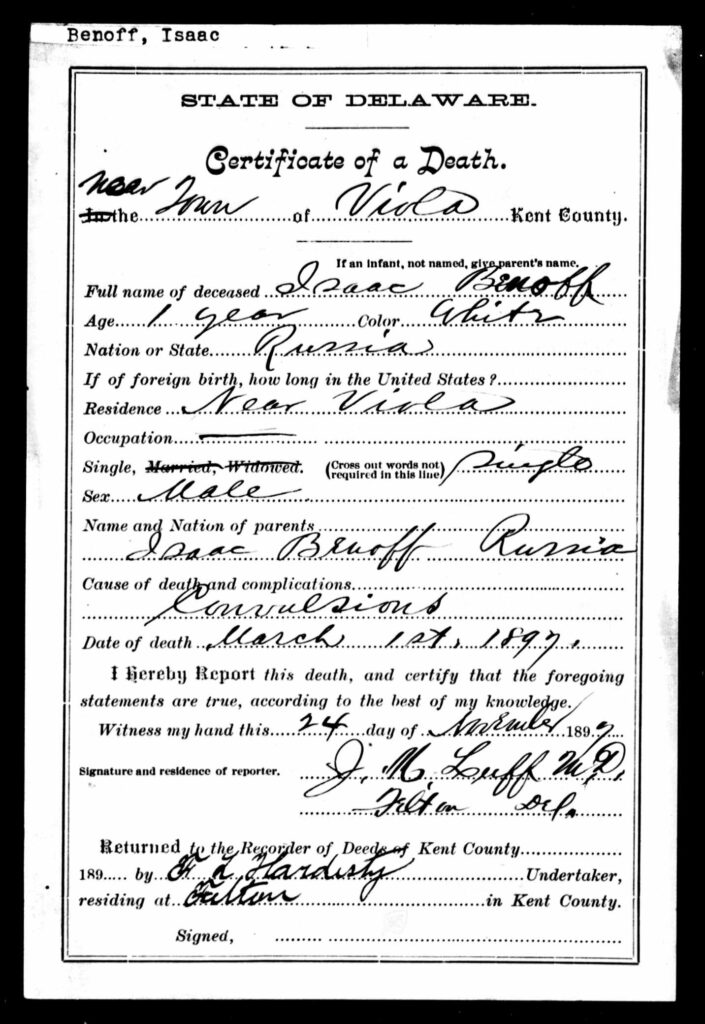 Benoff, Isaac
STATE OF DELAWARE.
Certificate of a Death.
near
In the Town of Viola Kent County.
If an infant, not named, give parent's name.
Full name of deceased Isaac Benoff
Age 1 year Color White
Nation or State Russia
If of foreign birth, how long in the United States?
Residence Near Viola
Occupation
Single, Married, Widowed. (Cross out words not required in this line) Single
Sex Male
Name and Nation of parents
Isaac Benoff Russia
Cause of death and complications
Convulsions
Date of death March 1st, 1897.
I Hereby Report this death, and certify that the foregoing
statements are true, according to the best of my knowledge.
Witness my hand this 24 day of November 1897
Signature and residence of reporter. J. M. Luff M.D.
Felton Del.
Returned to the Recorder of Deeds of Kent County
189 by F L Hardisty Undertaker,
residing at Felton in Kent County.
Signed,